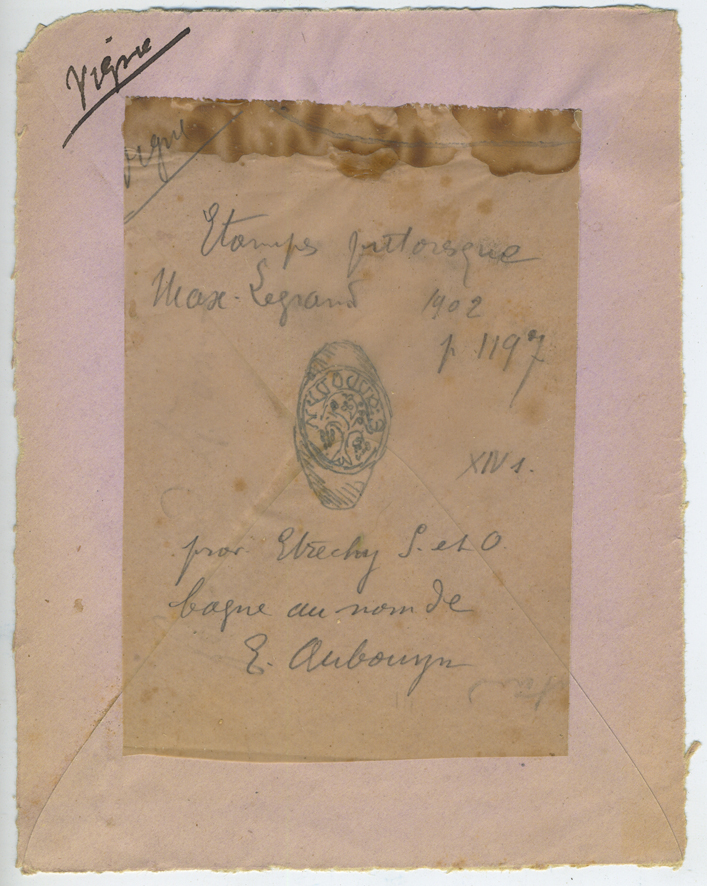 Vigne
Vigne
Etampes pittoresque
Max. Legrand 1902
p. 1197
XIV s.
prov. Etrechy S. et O.
bague au nom de
E. Aubouyn